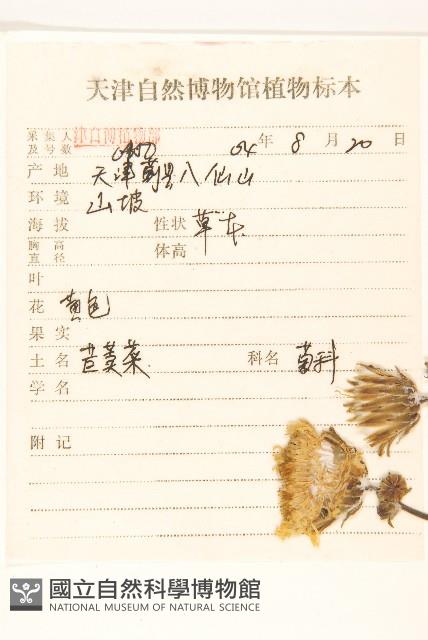 天津自然博物馆植物标本
采集人及号数 津自博植物部 04 年 8 月 20 日
产地 天津蓟县八仙山
环境 山坡
海拔 性状 草本
胸高直径 体高
叶
花 黄色
果实
土名 苣荬菜 科名 菊科
学名
附记
國立自然科學博物館
NATIONAL MUSEUM OF NATURAL SCIENCE